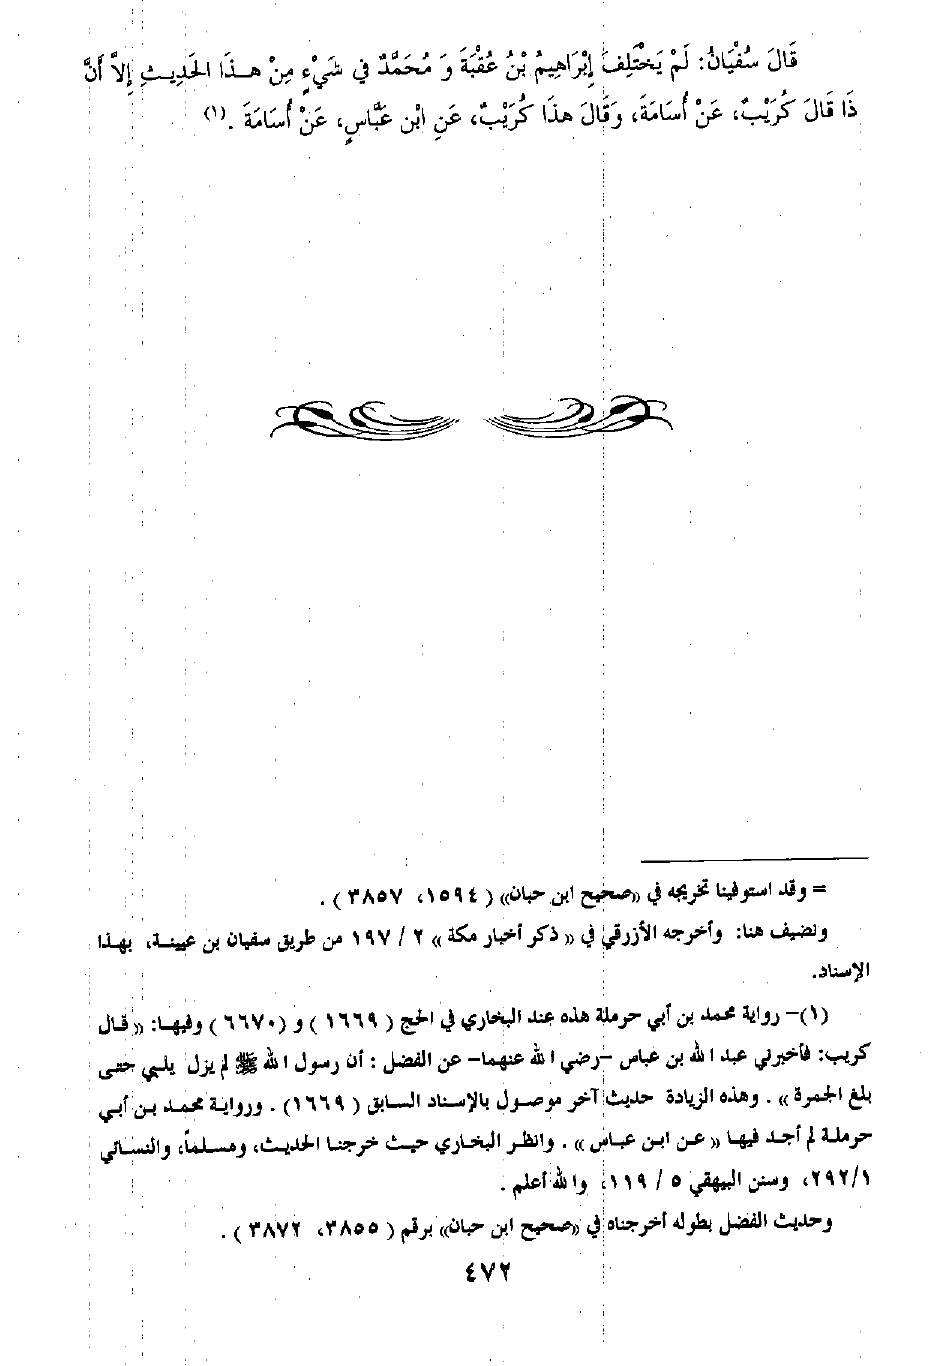 قَالَ سُفْيَانُ: لَمْ يَخْتَلِفْ إِبْرَاهِيمُ بْنُ عُقْبَةَ وَ مُحَمَّدٌ فِي شَيْءٍ مِنْ هـذَا الحَدِيثِ إِلاَّ أَنَّ
ذَا قَالَ كُرَيْبٌ، عَنْ أُسَامَةَ، وَقَالَ هذَا كُرَيْبٌ، عَنِ ابْنِ عَبَّاسٍ، عَنْ أُسَامَةَ .(١)
= وقد استوفينا تخريجه في «صحيح ابن حبان» ( ١٥٩٤، ٣٨٥٧ ) .
ونضيف هنا: وأخرجه الأزرقي في « ذكر أخبار مكة » ٢ / ١٩٧ من طريق سفيان بن عيينة، بهذا
الإسناد.
(١)- رواية محمد بن أبي حرملة هذه عند البخاري في الحج ( ١٦٦٩ ) و (٦٦٧٠) وفيها: « قال
كريب: فأخبرني عبد الله بن عباس -رضي الله عنهما- عن الفضل : أن رسول الله ﷺ لم يزل يلبي حتى
بلغ الجمرة » . وهذه الزيادة حديث آخر موصول بالإسناد السابق ( ١٦٦٩) . ورواية محمد بن أبي
حرملة لم أجد فيها « عن ابن عباس » . وانظر البخاري حيث خرجنا الحديث، ومسلماً، والنسائي
٢٩٢/١، وسنن البيهقي ٥ / ١١٩، والله أعلم .
وحديث الفضل بطوله أخرجناه في «صحيح ابن حبان» برقم ( ٣٨٥٥، ٣٨٧٢ ) .
٤٧٢